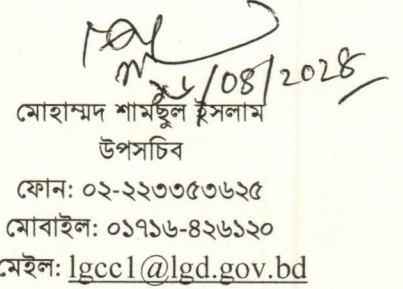 /০৪/২০২৪
মোহাম্মদ শামছুল ইসলাম
উপসচিব
ফোন: ০২-২২৩৩৫৩৬২৫
মোবাইল: ০১৭১৬-৪২৬১২০
মেইল: lgcc1@lgd.gov.bd